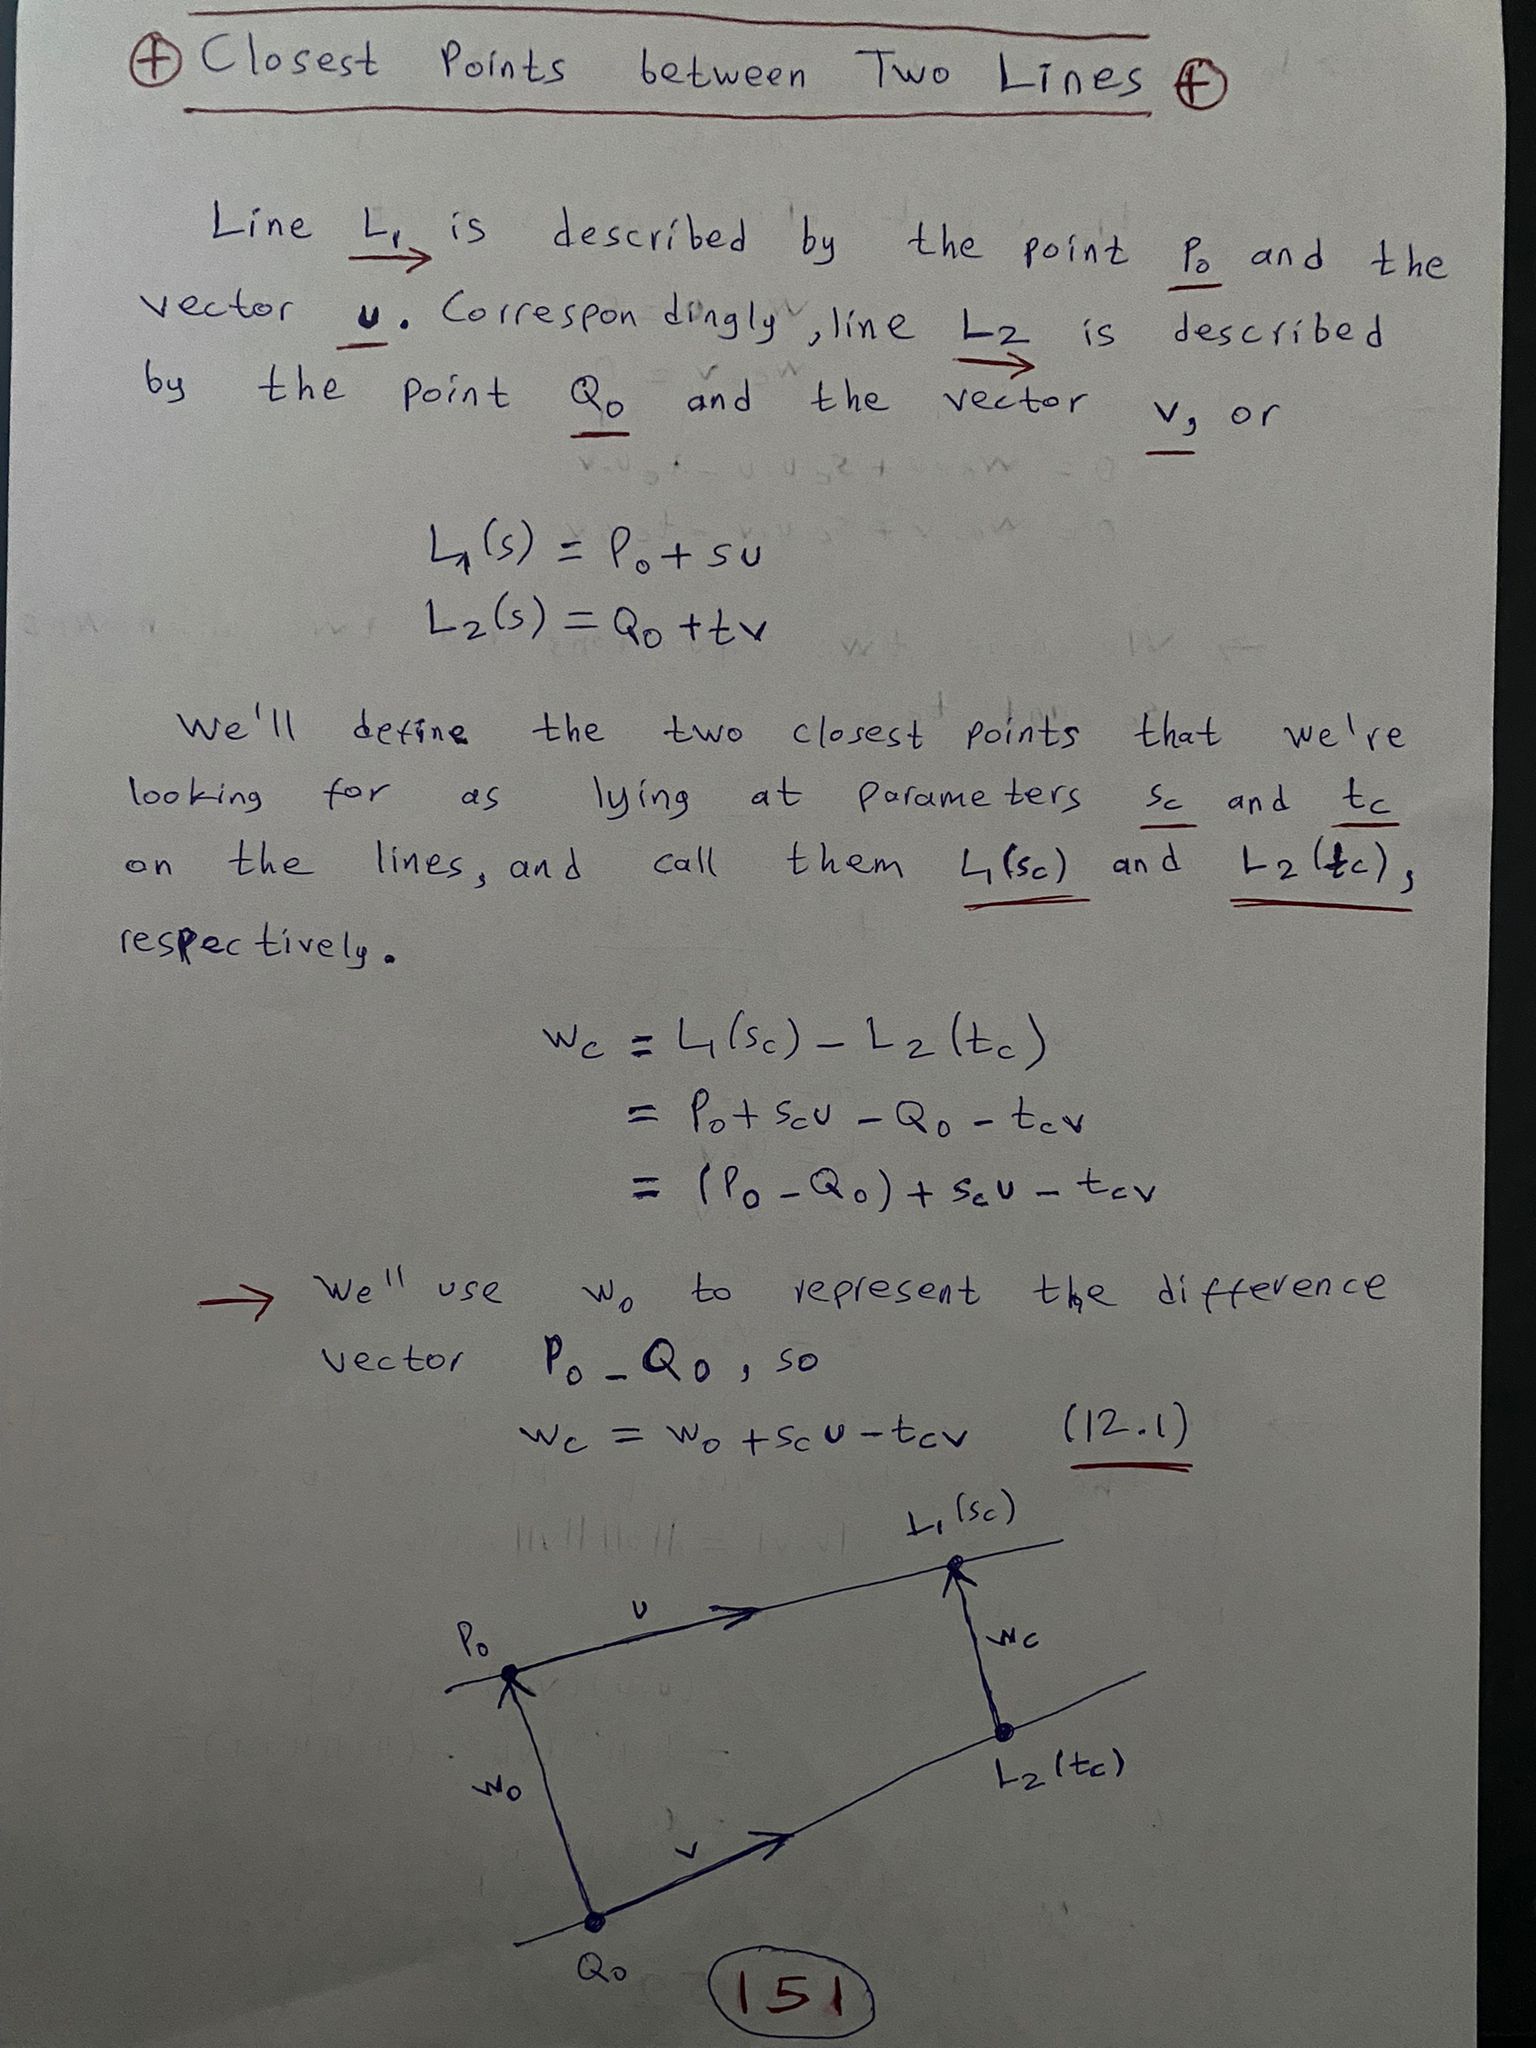 ⊕ Closest Points between Two Lines ⊕
Line L₁ is described by the point P₀ and the
vector u. Correspondingly, line L2 is described
by the point Q₀ and the vector v, or
L₁(s) = P₀ + su
L₂(s) = Q₀ + tv
We'll define the two closest points that we're
looking for as lying at parameters sc and tc
on the lines, and call them L₁(sc) and L₂(tc),
respectively.
wc = L₁(sc) - L₂(tc)
= P₀ + scu - Q₀ - tcv
= (P₀ - Q₀) + scu - tcv
→ We'll use w₀ to represent the difference
vector P₀ - Q₀, so
wc = w₀ + scu - tcv (12.1)
L₁(sc)
u
P₀
wc
L₂(tc)
w₀
v
Q₀
151